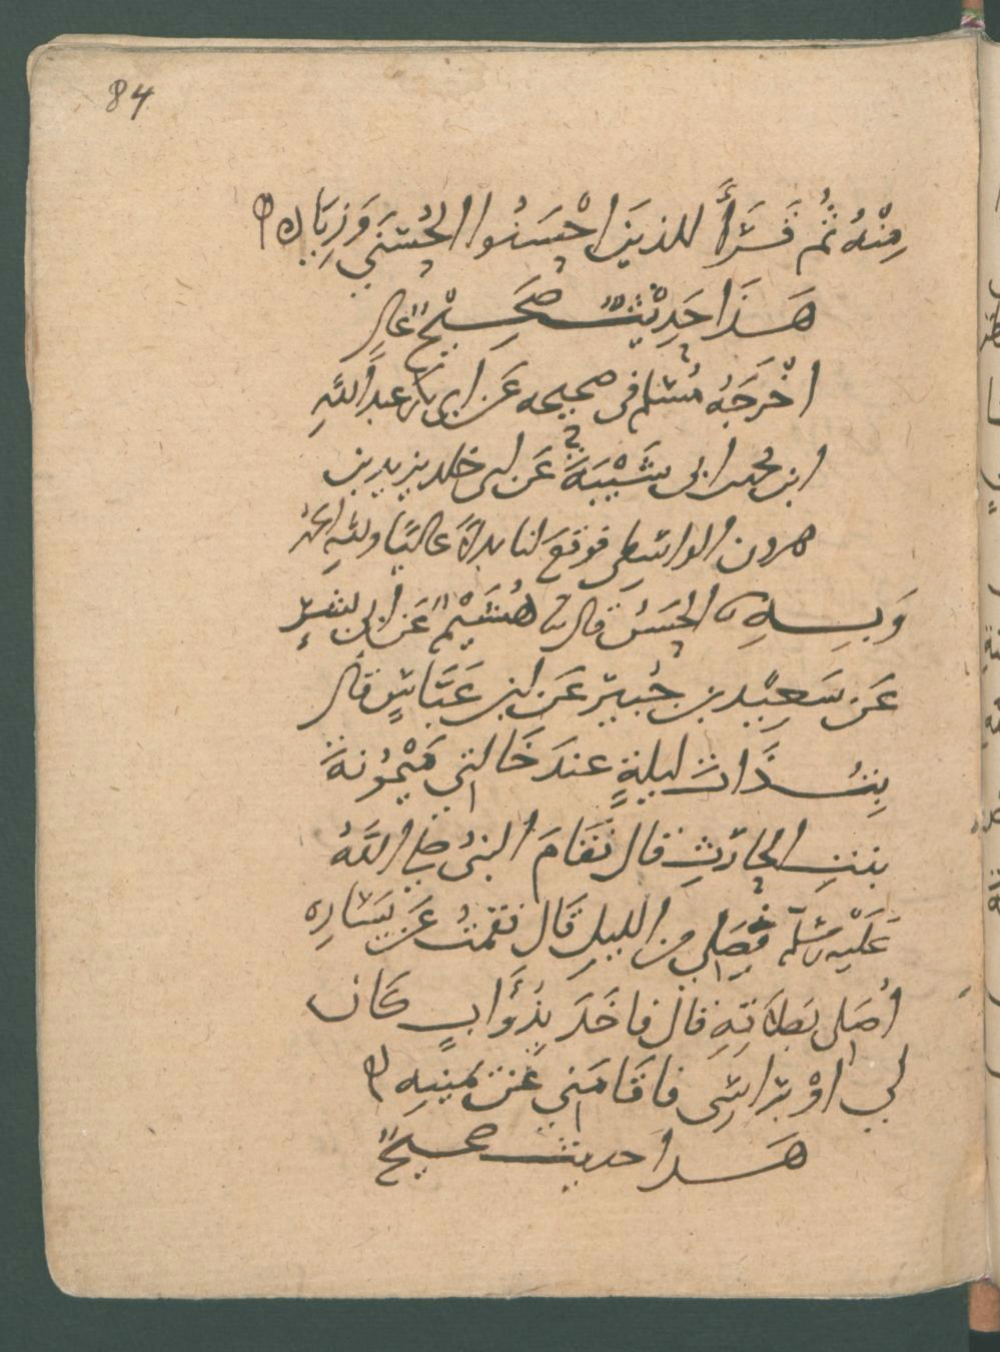 84
مِنْهُ ثُمَّ قَرَأَ للذينَ احْسَنُوا الحُسْنَى وَزِيَادَه
هَذَا حَدِيْثٌ صَحِيْحٌ عَالٍ
اخْرَجَهُ مُسْلم فى صحيحه عَن ابى بكر عبد اللهِ
ابن محمد ابى شَيْبَةَ عَن ابى خلد يزيد بن
هرون الواسطِى فوقعَ لنا بدلاً عَاليًا ولله الحمدُ
وَبِـهِ الحَسَنُ قال ثنا هُشَيْمٌ عَن ابى بشرٍ
عَن سَعِيْد بن جُبيرٍ عَن ابن عَبَّاسٍ قال
بِتُّ ذَاتَ ليلةٍ عندَ خَالتِي مَيْمُونةَ
بنتِ الحارثِ قال فَقَامَ النبىُ صلى اللهُ
عَلَيْه وسلّم فصَلى من الليلِ قَال فقمتُ عَن يَسَارِه
اُصَلى بصَلاَتهِ قال فاخَذَ بِذُؤَابٍ كَان
لي اوْ برَاسِى فاقَامَنِي عَن يَمينِه
هـذا حديث صحيحٌ